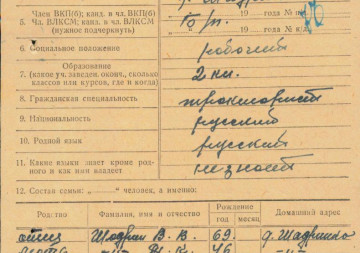 Член ВКП(б); канд. в чл. ВКП(б) 19 год № п/б
5. Член ВЛКСМ; канд. в чл. ВЛКСМ б/п. 19 год № к/б
(нужное подчеркнуть)
6. Социальное положение рабочий
Образование
7. (какое уч. заведен. оконч., сколько 2 кл.
классов или курсов, где и когда)
8. Гражданская специальность
9. Национальность русский
10. Родной язык русский
11. Какие языки знает кроме род-
ного и как ими владеет не знает
12. Состав семьи: „ “ человек, а именно:
Родство Фамилия, имя и отчество Рождение Домашний адрес
год месяц
отец В. В. 69. д.
мать